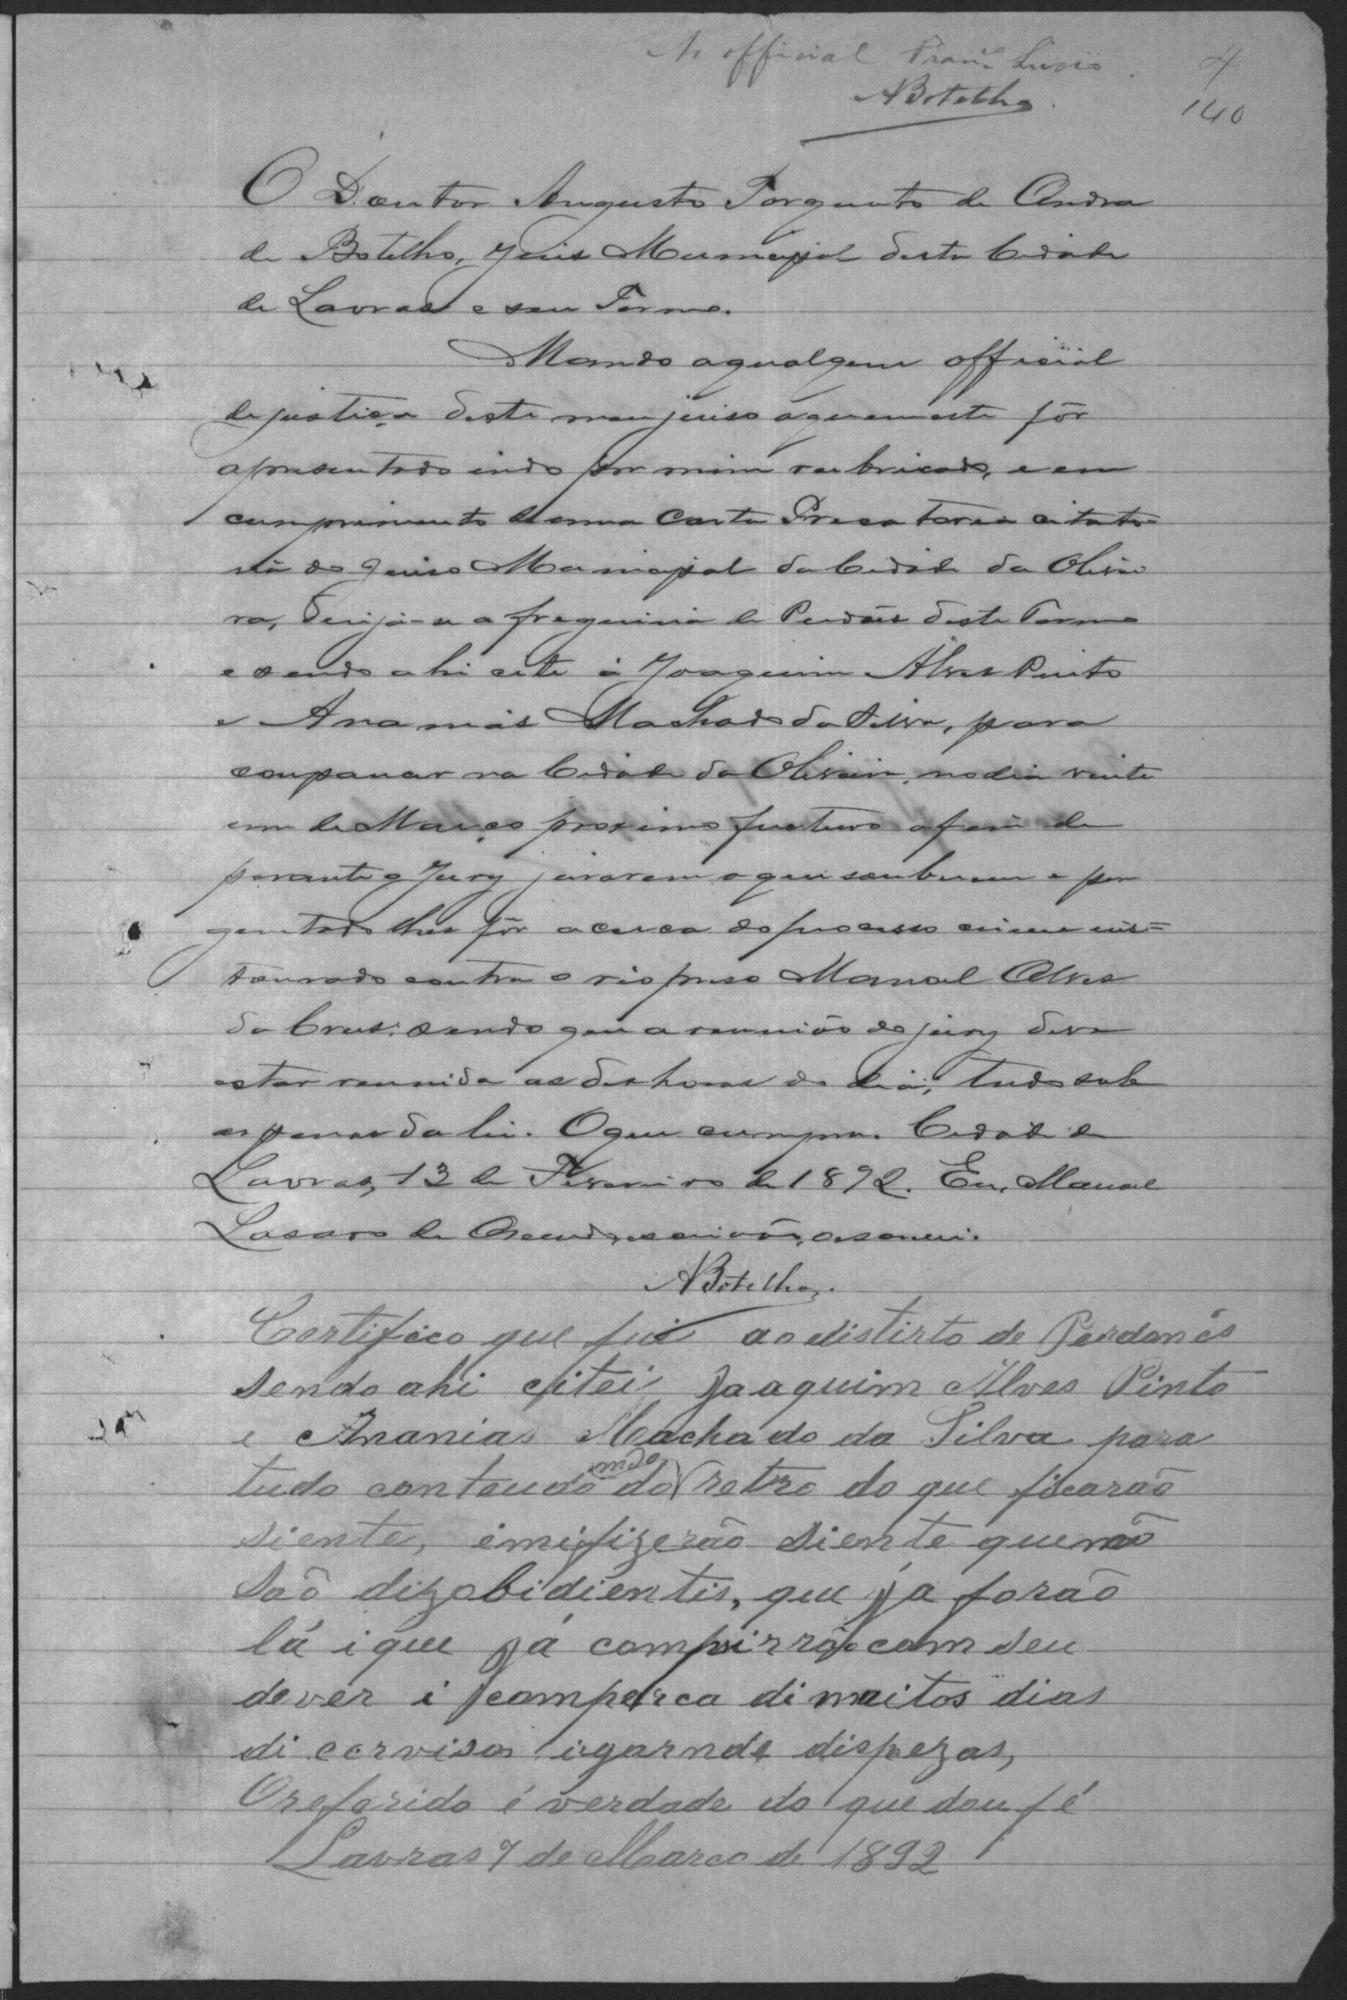 Ao official Franc.
ABotelho.
4
140
O Doutor Augusto Torquato de Andra
de Botelho, Juis Municipal desta Cidade
de Lavras e seu Termo.
Mando a qualquer official
de justiça deste meu juiso a quem este fôr
apresentado indo por mim rubricado, e em
cumprimento de uma Carta Precatoria citato-
ria do Juiso Municipal da Cidade da Olivei
ra, dirija-se a freguisia de Perdões deste Termo
e sendo ahi cite á Joaquim Alves Pinto
e Ananias Machado da Silva, para
comparecer na Cidade da Oliveira, no dia vinte
um de Março proximo futuro afim de
perante o Jury jurarem o que souberem e per
guntado lhes fôr acerca do processo crime ins=
taurado contra o rio preso Manoel Alves
da Crus: sendo que a reunião do jury deve
estar reunida as des horas do dia; tudo sob
as penas da lei. O que cumpra. Cidade de
Lavras, 13 de Fevereiro de 1892. Eu, Manoel
Lasaro de escrivão, o escrevi.
ABotelho.
Certifico que fui ao distirto de Perdonês
sendo ahi citei Joaquim Alves Pinto
e Ananias Machado da Silva para
tudo conteudo do mdo retro do que ficarão
siente, i mi fizerão siente que não
são dizobidientis, que já forão
lá i que já compirrão com seu
dever i comperca di muitos dias
di cerviso i garnde dispezas,
O referido é verdade do que dou fé
Lavras 7 de Marco de 1892